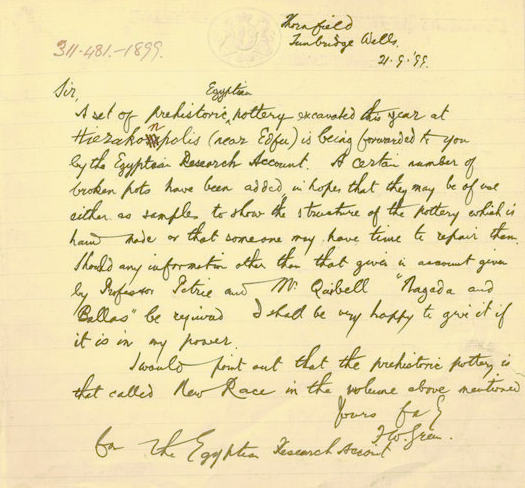 Thornfield
Tunbridge Wells.
311-481.-1899.
21.9.'99.
Sir,
Egyptian
A set of prehistoric pottery excavated this year at
Hierakonpolis (near Edfu) is being forwarded to you
by the Egyptian Research Account. A certain number of
broken pots have been added in hopes that they may be of use
either as samples to show the structure of the pottery which is
hand made or that someone may have time to repair them.
Should any information other than that given in account given
by Professor Petrie and Mr Quibell "Nagada and
Ballas" be required I shall be very happy to give it if
it is in my power.
I would point out that the prehistoric pottery is
that called New Race in the volume above mentioned
Yours
F. W. Green.
for the Egyptian Research Account